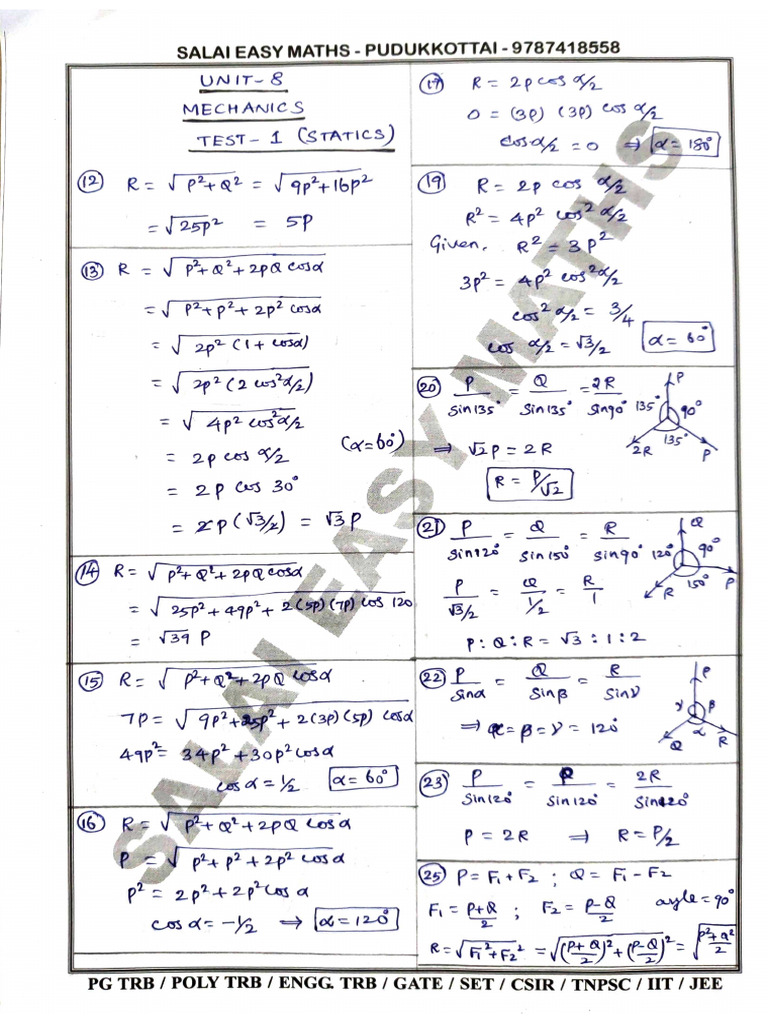 SALAI EASY MATHS - PUDUKKOTTAI - 9787418558
UNIT-8
MECHANICS
TEST-1 (STATICS)
(12) R = √(P²+Q²) = √(9P²+16P²)
= √25P² = 5P
(13) R = √(P²+Q²+2PQ cosα)
= √(P²+P²+2P² cosα)
= √(2P²(1+cosα))
= √(2P²(2cos²α/2))
= √(4P² cos²α/2)
= 2P cos α/2 (α=60°)
= 2P cos 30°
= 2P(√3/2) = √3 P
(14) R = √(P²+Q²+2PQ cosα)
= √(25P²+49P²+2(5P)(7P) cos 120
= √39 P
(15) R = √(P²+Q²+2PQ cosα)
7P = √(9P²+25P²+2(3P)(5P) cosα
49P² = 34P²+30P² cosα
cosα = 1/2 α=60°
(16) R = √(P²+Q²+2PQ cosα)
P = √(P²+P²+2P² cosα)
P² = 2P²+2P² cosα
cosα = -1/2 ⇒ α=120°
(17) R = 2P cos α/2
0 = (3P) (3P) cos α/2
cos α/2 = 0 ⇒ α=180°
(19) R = 2P cos α/2
R² = 4P² cos² α/2
Given, R² = 3P²
3P² = 4P² cos² α/2
cos² α/2 = 3/4
cos α/2 = √3/2 α=60°
(20) P/sin135° = Q/sin135° = 2R/sin90°
P
135° 90°
135°
2R P
⇒ √2P = 2R
R = P/√2
(21) P/sin120° = Q/sin150° = R/sin90°
Q
120° 90°
150°
R P
P/(√3/2) = Q/(1/2) = R/1
P : Q : R = √3 : 1 : 2
(22) P/sinα = Q/sinβ = R/sinγ
P
γ β
α
Q R
⇒ α=β=γ=120°
(23) P/sin120° = P/sin120° = 2R/sin120°
P = 2R ⇒ R = P/2
(25) P = F₁+F₂ ; Q = F₁-F₂
F₁ = (P+Q)/2 ; F₂ = (P-Q)/2 angle = 90°
R = √(F₁²+F₂²) = √(((P+Q)/2)²+((P-Q)/2)²) = √((P²+Q²)/2)
PG TRB / POLY TRB / ENGG. TRB / GATE / SET / CSIR / TNPSC / IIT / JEE
SALAI EASY MATHS